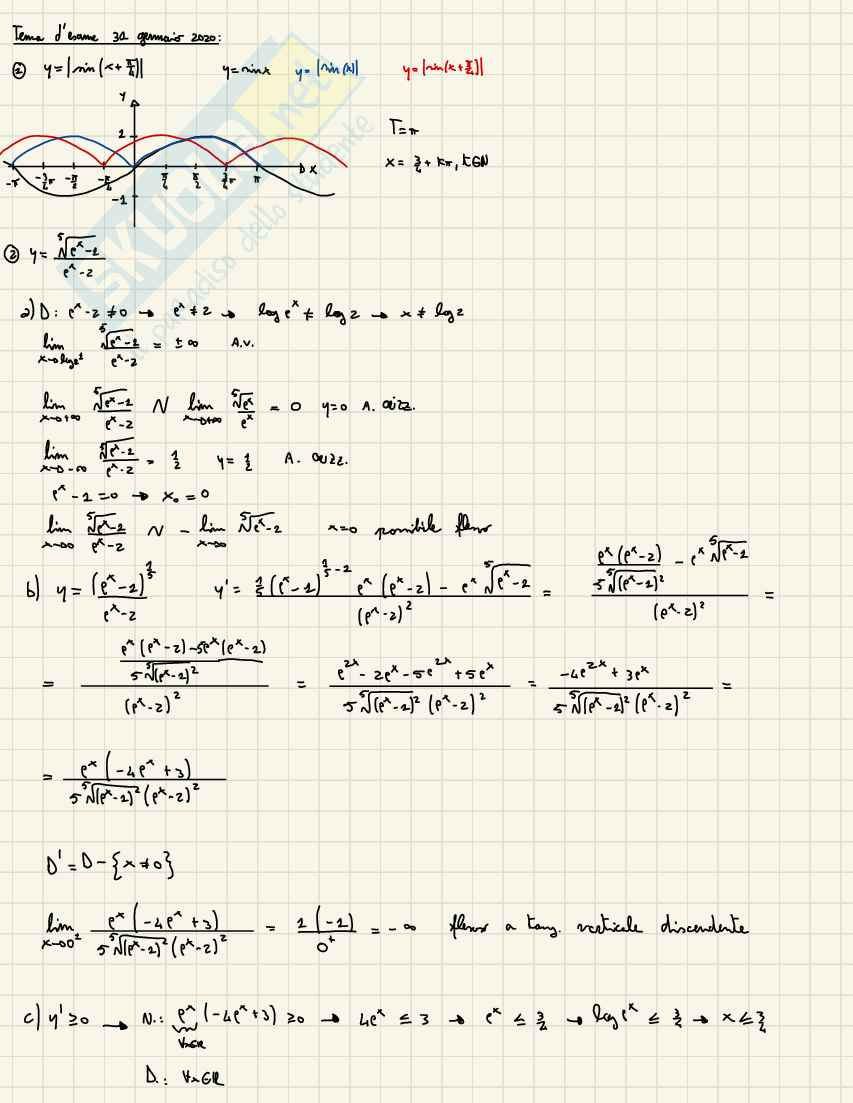 Tema d'esame 31 gennaio 2020:
① y=|sin(x+π/4)| y=sinx y=|sin(x)| y=|sin(x+π/4)|
Y
1
-π -3/4π -π/2 -π/4 π/4 π/2 3/4π π X
-1
T=π
x= 3/4 + kπ, k∈N
SKUOLA.net
il paradiso dello studente
② y= ⁵√(eˣ-1) / (eˣ-2)
a) D: eˣ-2≠0 → eˣ≠2 → log eˣ ≠ log2 → x≠log2
lim x→log2± ⁵√(eˣ-1) / (eˣ-2) = ±∞ A.v.
lim x→+∞ ⁵√(eˣ-1) / (eˣ-2) ~ lim x→+∞ ⁵√(eˣ) / eˣ = 0 y=0 A. orizz.
lim x→-∞ ⁵√(eˣ-1) / (eˣ-2) = 1/2 y= 1/2 A. orizz.
eˣ-1=0 → x₀=0
lim x→0 ⁵√(eˣ-1) / (eˣ-2) ~ - lim x→0 ⁵√(eˣ-1) x=0 possibile flesso
b) y= (eˣ-1)^(1/5) / (eˣ-2) y'= (1/5 (eˣ-1)^(1/5-1) eˣ(eˣ-2) - eˣ ⁵√(eˣ-1)) / (eˣ-2)² = (eˣ(eˣ-2) / 5⁵√(eˣ-1)² - eˣ ⁵√(eˣ-1)) / (eˣ-2)² =
= ((eˣ(eˣ-2)-5eˣ(eˣ-1)) / 5⁵√(eˣ-1)²) / (eˣ-2)² = (e²ˣ-2eˣ-5e²ˣ+5eˣ) / (5⁵√(eˣ-1)² (eˣ-2)²) = (-4e²ˣ+3eˣ) / (5⁵√(eˣ-1)² (eˣ-2)²) =
= eˣ(-4eˣ+3) / (5⁵√(eˣ-1)² (eˣ-2)²)
D'=D-{x≠0}
lim x→0± eˣ(-4eˣ+3) / (5⁵√(eˣ-1)² (eˣ-2)²) = 1(-1) / 0⁺ = -∞ flesso a tang. verticale discendente
c) y'≥0 → N.: eˣ(-4eˣ+3)≥0 → 4eˣ ≤ 3 → eˣ ≤ 3/4 → log eˣ ≤ 3/4 → x ≤ 3/4
∀x∈R
D.: ∀x∈R